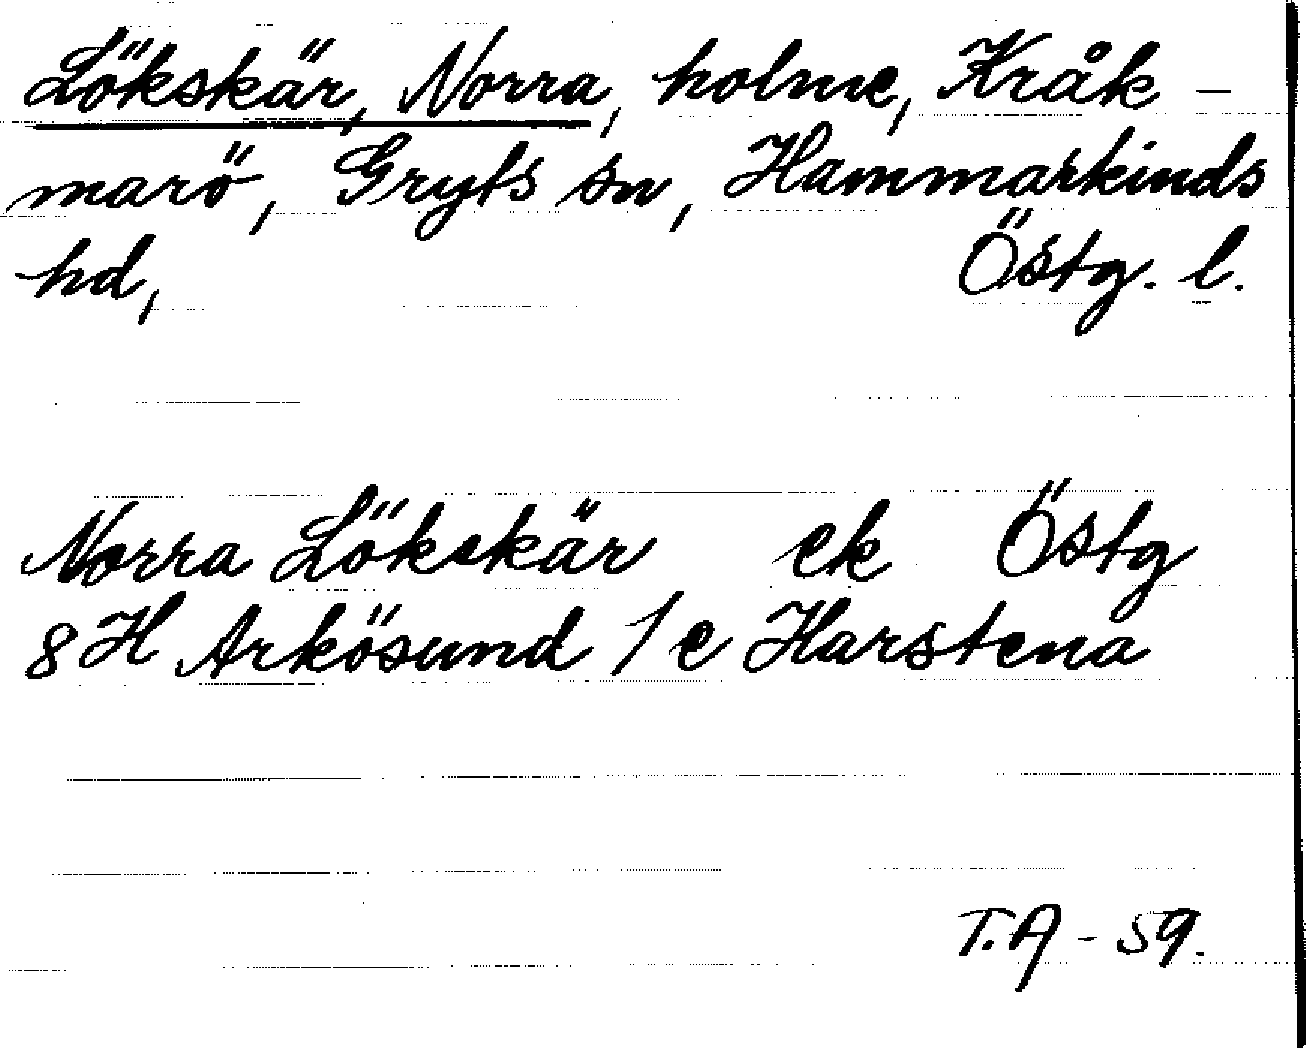 Lökskär, Norra, holme, Kråk-
marö, Gryts sn, Hammarkinds
hd, Östg. l.
Norra Lökskär ek Östg
8H Arkösund /e Harstena
T.A - 59.